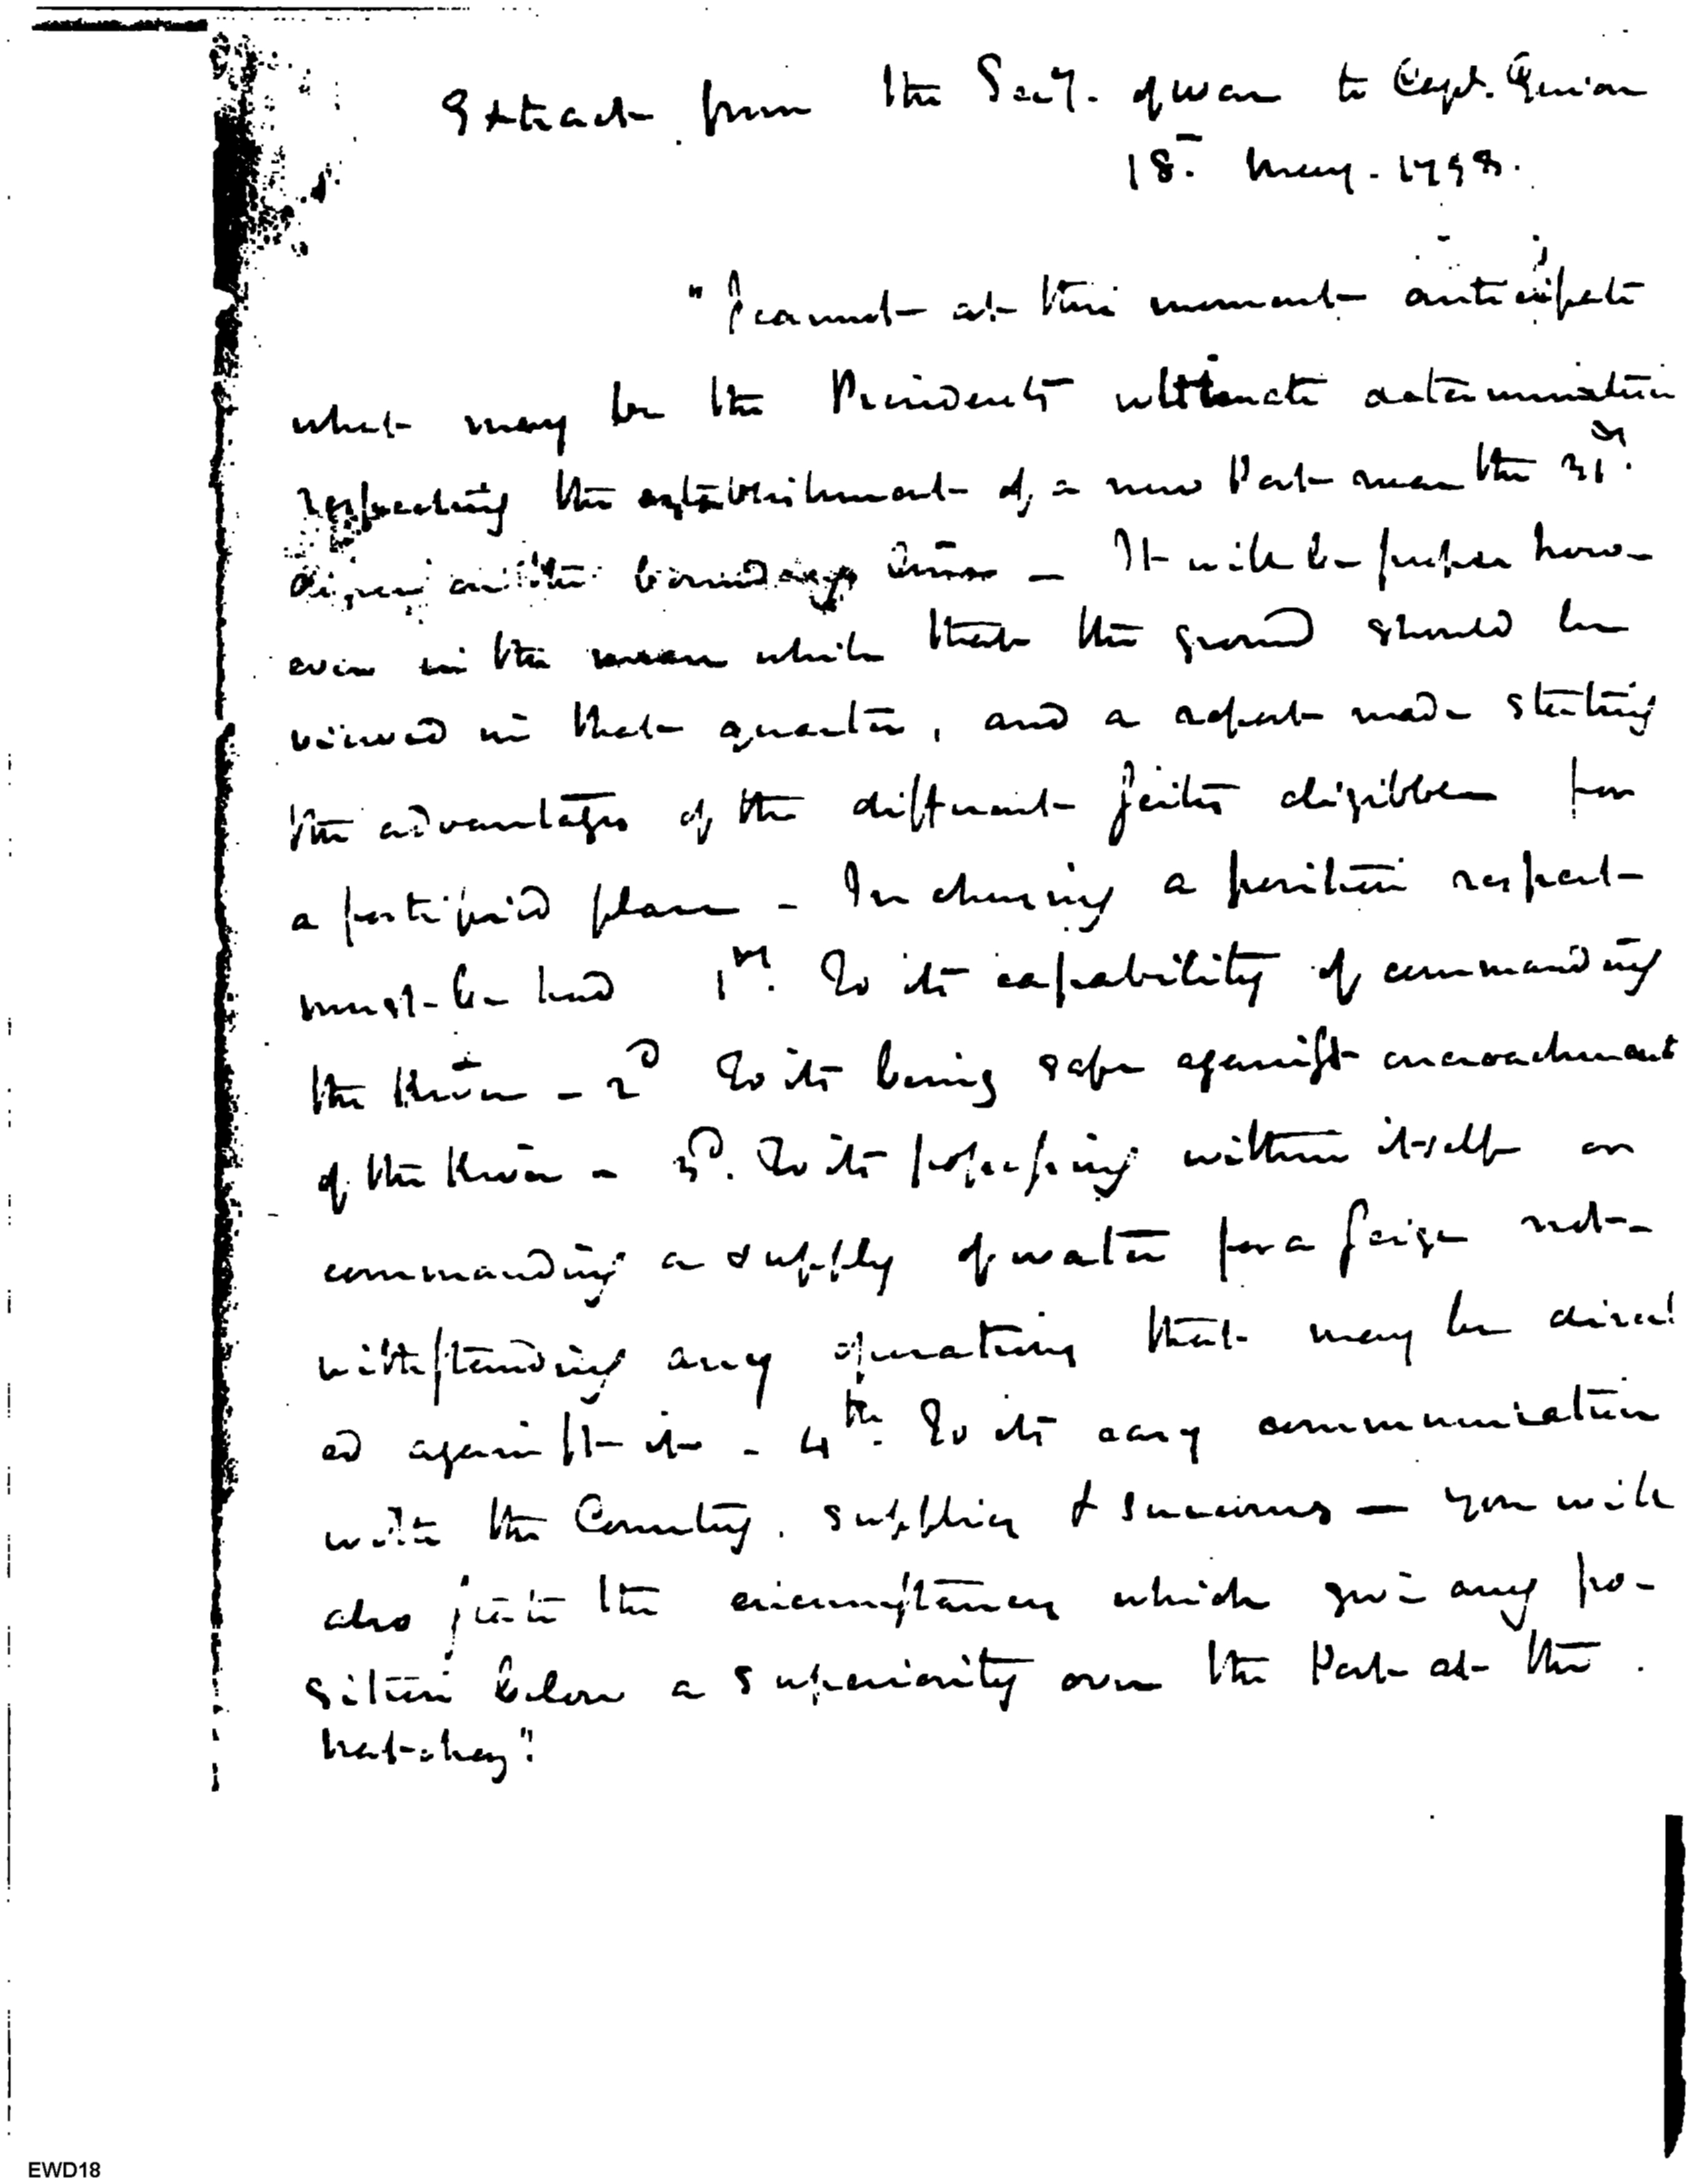 Extract from the Secy. of war to Capt. Guion
18. May - 1798.
"I cannot at this moment anticipate
what may be the Presidents ultimate determination
respecting the establishment of a new Post near the 31st.
degree or the boundary line - It will be proper how-
ever in the mean while that the ground should be
viewed in that quarter, and a report made stating
the advantages of the different scites eligible for
a fortified place - In chusing a position respect
must be had 1st. To its capability of commanding
the River - 2d To its being safe against encroachment
of the River - 3d. To its possessing within itself or
commanding a supply of water for a seige not-
withstanding any operations that may be direct
ed against it - 4th. To its easy communication
with the Country, supplies & succours - you will
also state the circumstances which give any po-
sition below a superiority over the Post at the
Natchez".
EWD18